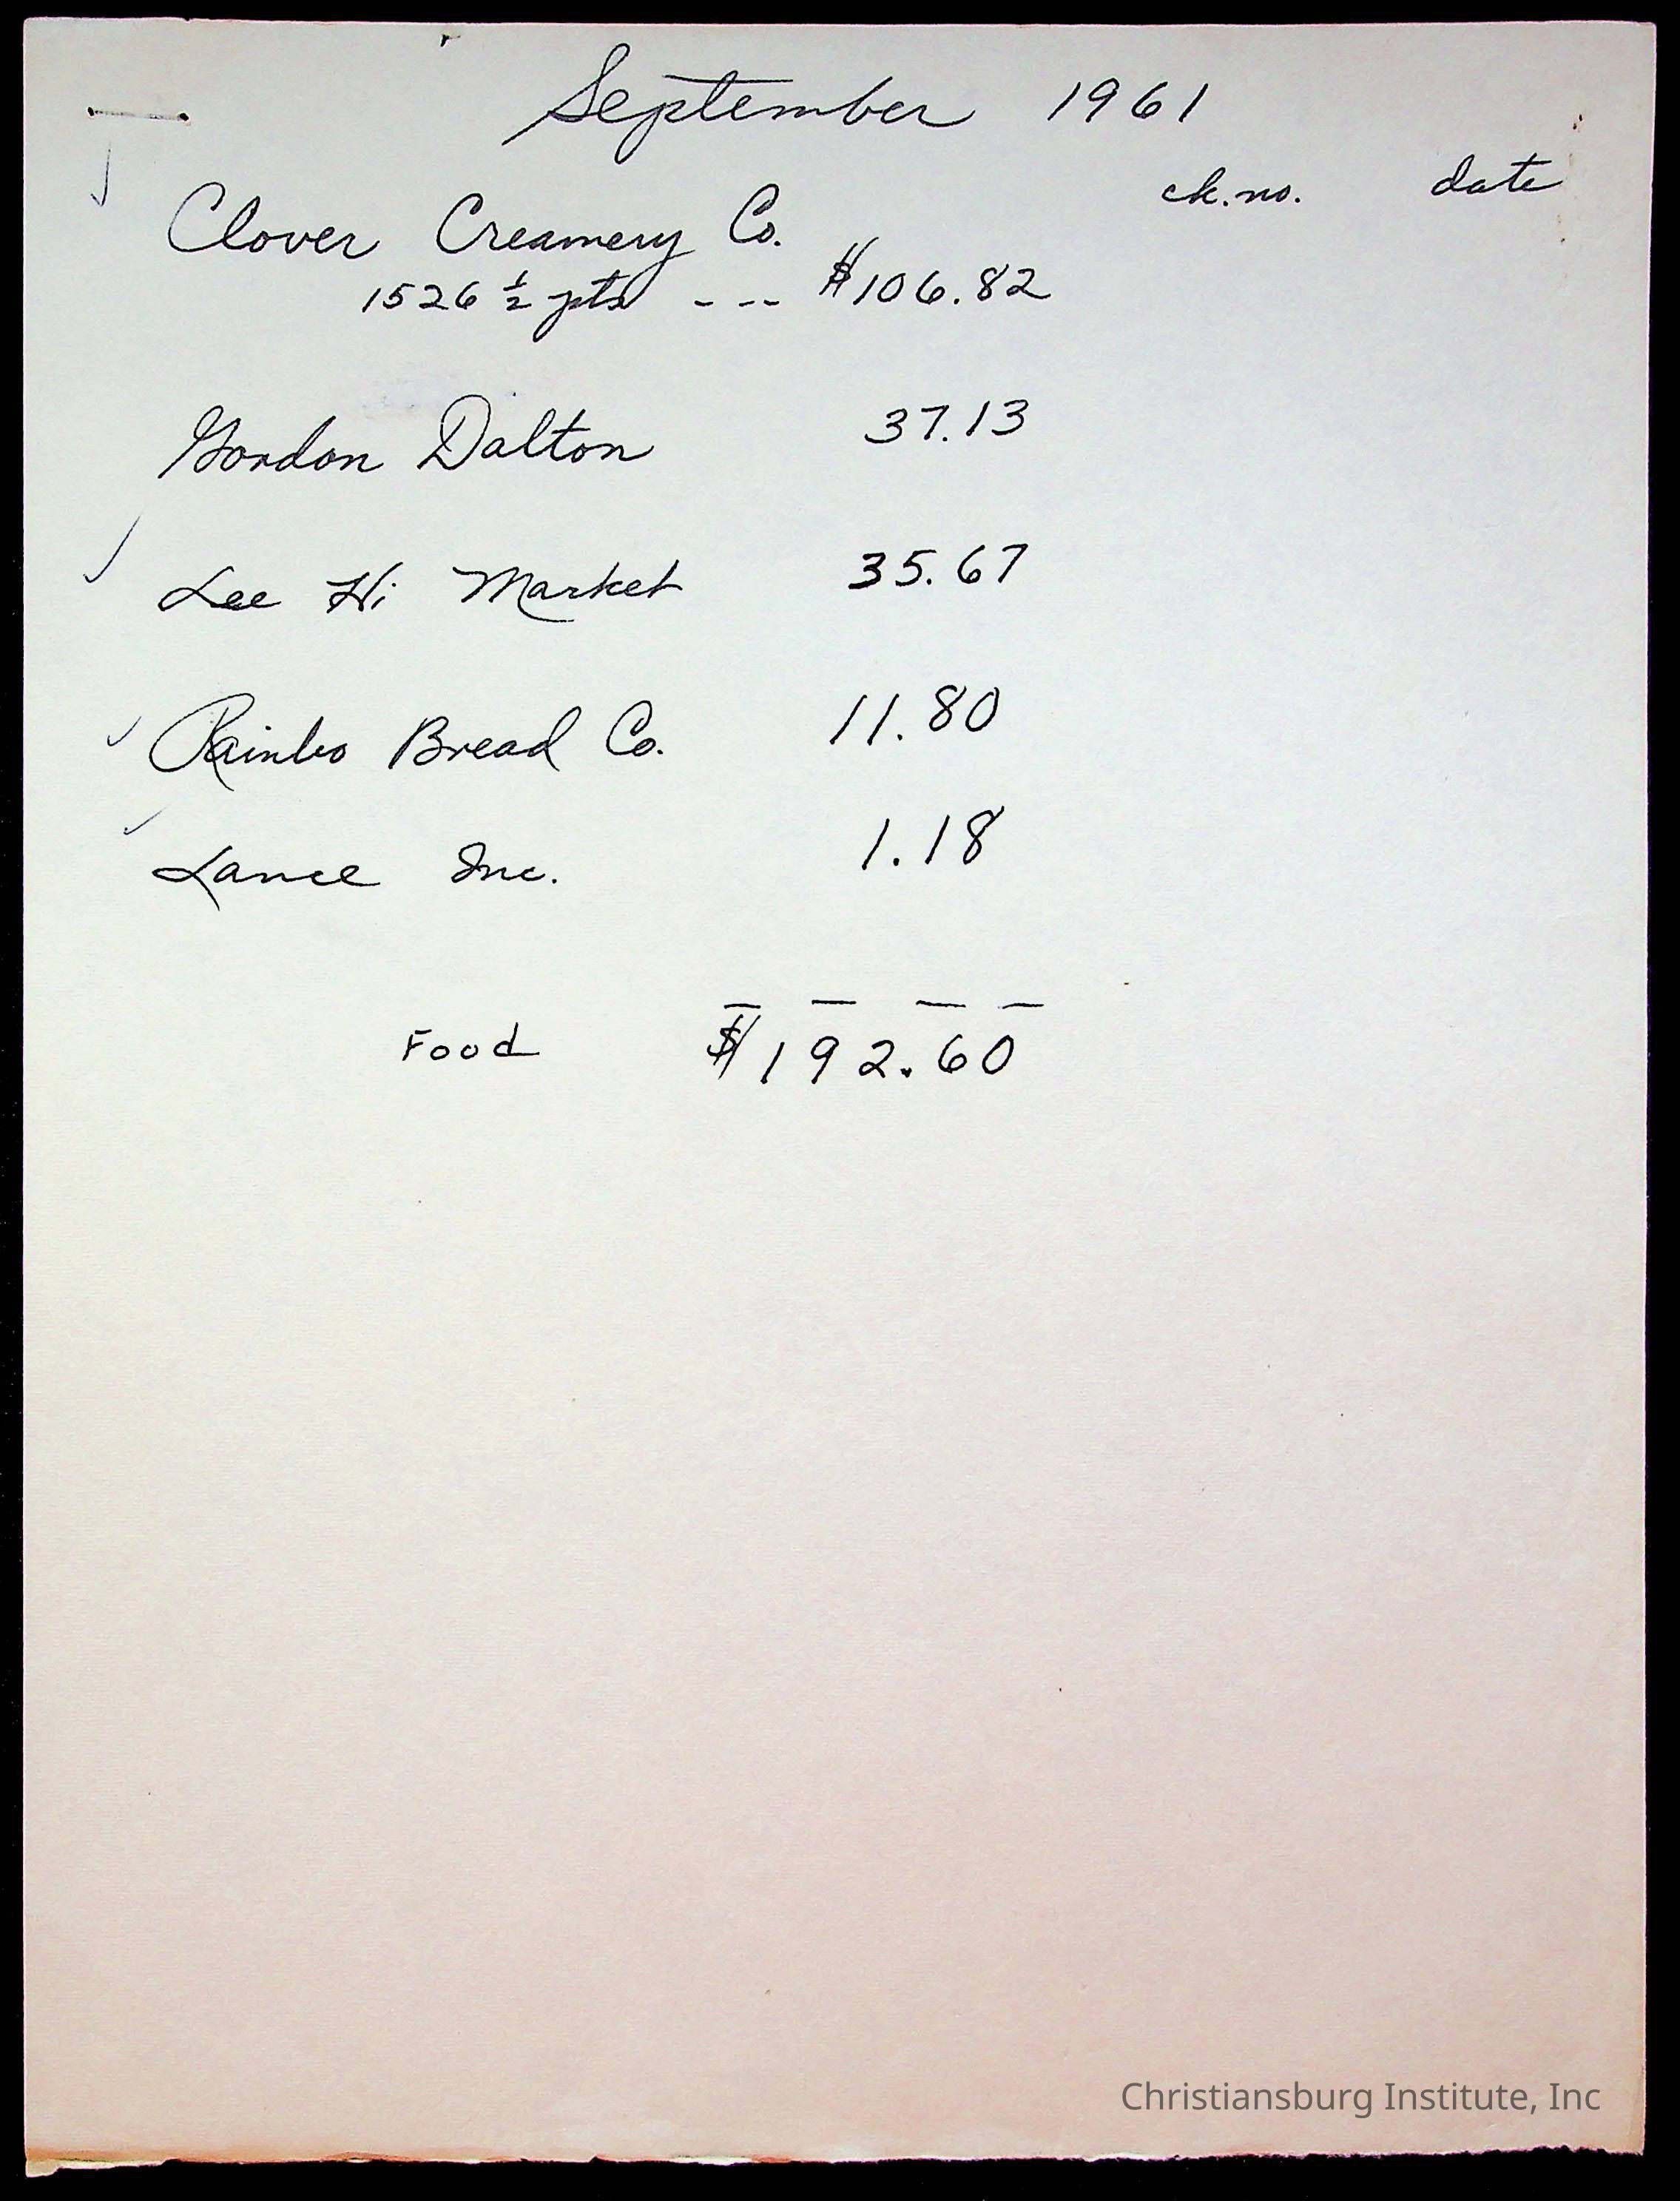 September 1961
ck.no. date
Clover Creamery Co.
1526 ½ pts --- $106.82
Gordon Dalton 37.13
Lee Hi Market 35.67
Rainbo Bread Co. 11.80
Lance Inc. 1.18
Food $192.60
Christiansburg Institute, Inc